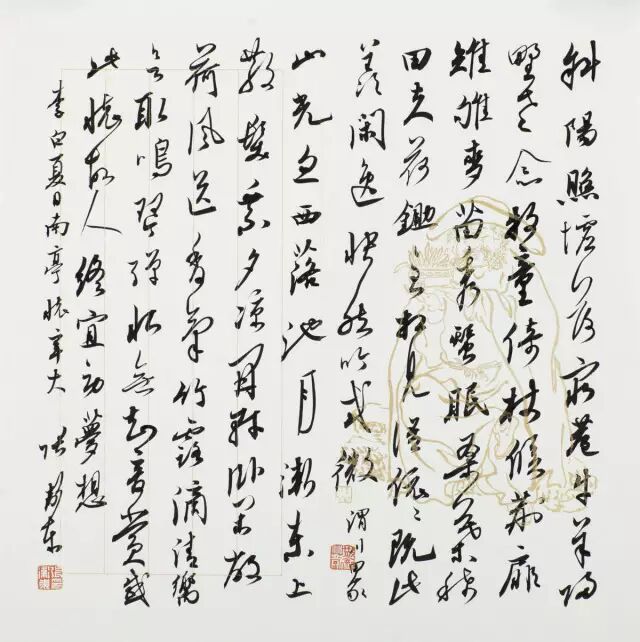 斜陽照墟落窮巷牛羊歸
野老念牧童倚杖候荊扉
雉雊麥苗秀蠶眠桑葉稀
田夫荷鋤至相見語依々既此
羨閑逸悵然吟式微
渭川田家
山光忽西落池月漸東上
散髮乘夕涼開軒臥閑敞
荷風送香氣竹露滴清響
欲取鳴琴彈恨無知音賞感
此懷故人終宵勞夢想
李白夏日南亭懷辛大